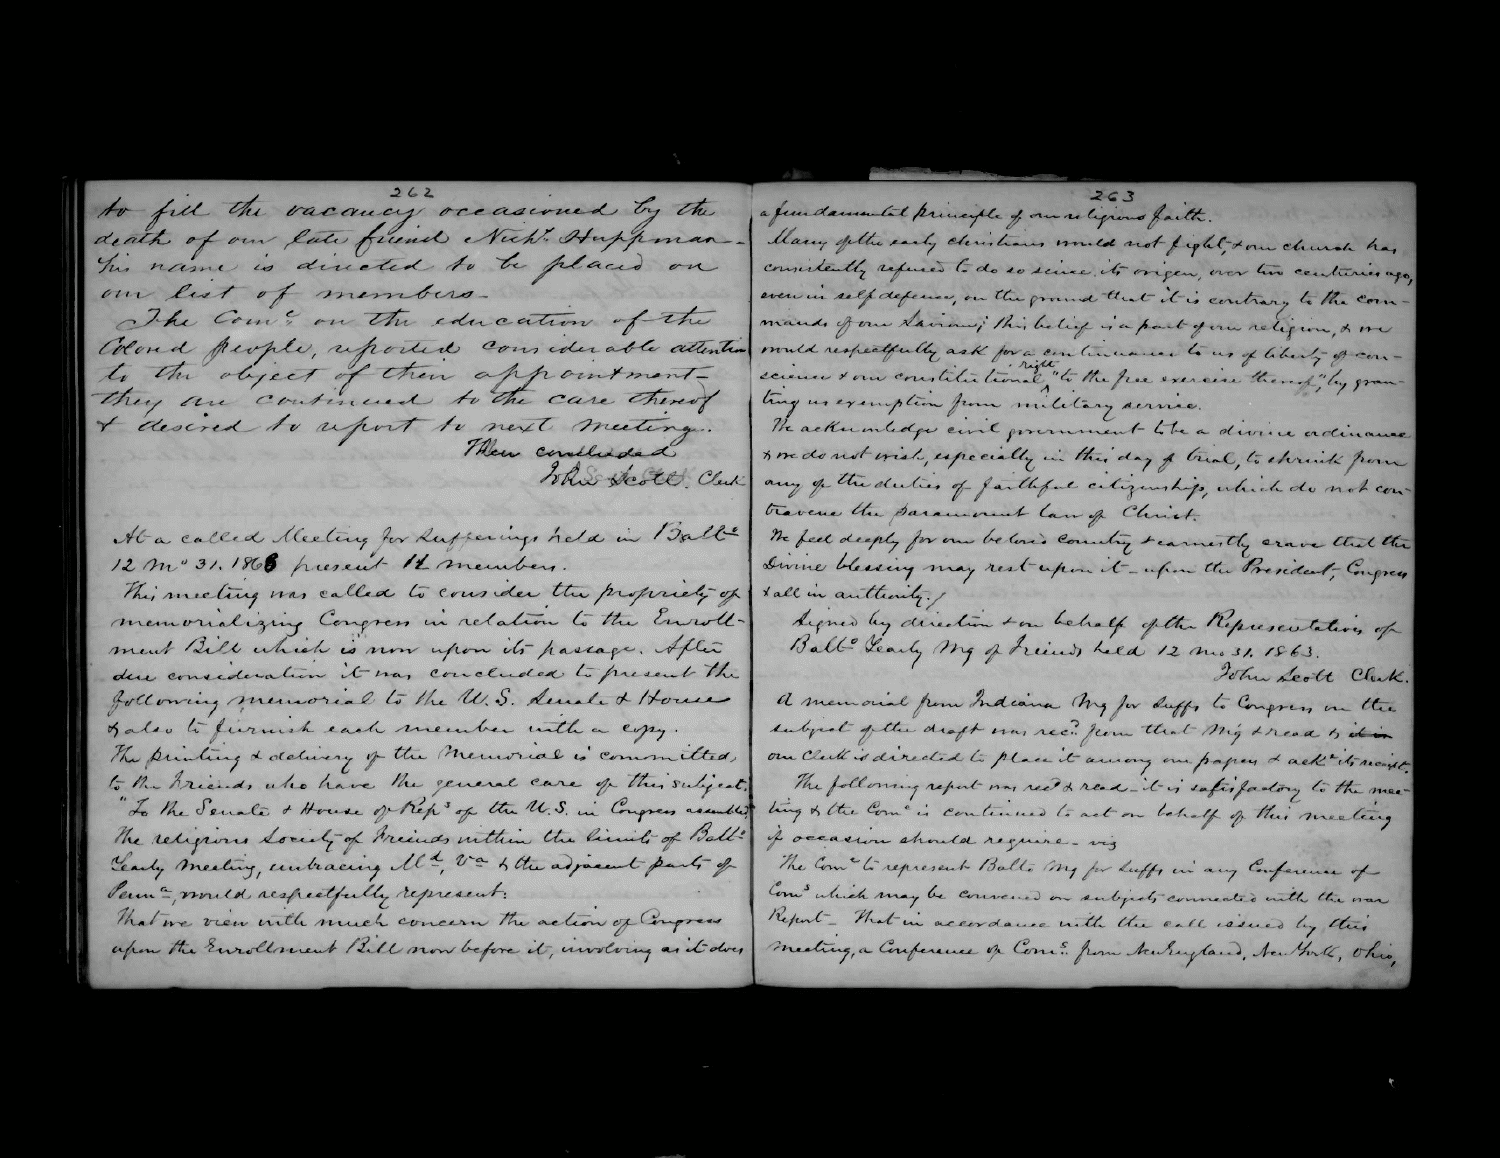 262
to fill the vacancy occasioned by the
death of our late friend Nichs. Huppman -
his name is directed to be placed on
our list of members -
The Come. on the education of the
Colored people, reported considerable attention
to the object of their appointment -
they are continued to the care thereof
& desired to report to next meeting.
Then concluded
John Scott. Clerk
At a called Meeting for Sufferings held in Balto
12 mo 31. 1863 present 14 members.
This meeting was called to consider the propriety of
memorializing Congress in relation to the Enroll-
ment Bill which is now upon its passage. After
due consideration it was concluded to present the
following memorial to the U. S. Senate & House
& also to furnish each member with a copy.
The printing & delivery of the Memorial is committed,
to the Friends who have the general care of this subject.
"To the Senate & House of Reps of the U. S. in Congress assembled,
The religious Society of Friends within the limits of Balto
Yearly Meeting, embracing Md, Va & the adjacent parts of
Penna, would respectfully represent:
That we view with much concern the action of Congress
upon the Enrollment Bill now before it, involving as it does
263
a fundamental principle of our religious faith.
Many of the early christians would not fight, & our church has
consistently refused to do so since its origen, over two centuries ago,
even in self defense, on the ground that it is contrary to the com-
mands of our Saviour; this belief is a part of our religion, & we
would respectfully ask for a continuance to us of liberty of con-
science & our constitutional right "to the free exercise thereof", by gran-
ting us exemption from military service.
We acknowledge civil government to be a divine ordinance
& we do not wish, especially in this day of trial, to shrink from
any of the duties of faithful citizenship, which do not con-
travene the paramount law of Christ.
We feel deeply for our beloved country & earnestly crave that the
Divine blessing may rest upon it - upon the President, Congress
& all in authority.
Signed by direction & on behalf of the Representatives of
Balto Yearly Mg of Friends held 12 mo 31. 1863.
John Scott Clerk.
A memorial from Indiana Mg for Suffs to Congress on the
subject of the draft was recd. from that Mg & read & it is
our Clerk is directed to place it among our papers & acke its receipt.
The following report was recd & read - it is satisfactory to the mee-
ting & the Come is continued to act on behalf of this meeting
if occasion should require - viz
The Come to represent Balto Mg for Suffs in any Conference of
Coms which may be convened on subjects connected with the war
Report - That in accordance with the call issued by this
meeting, a Conference of Coms. from New England, New York, Ohio,